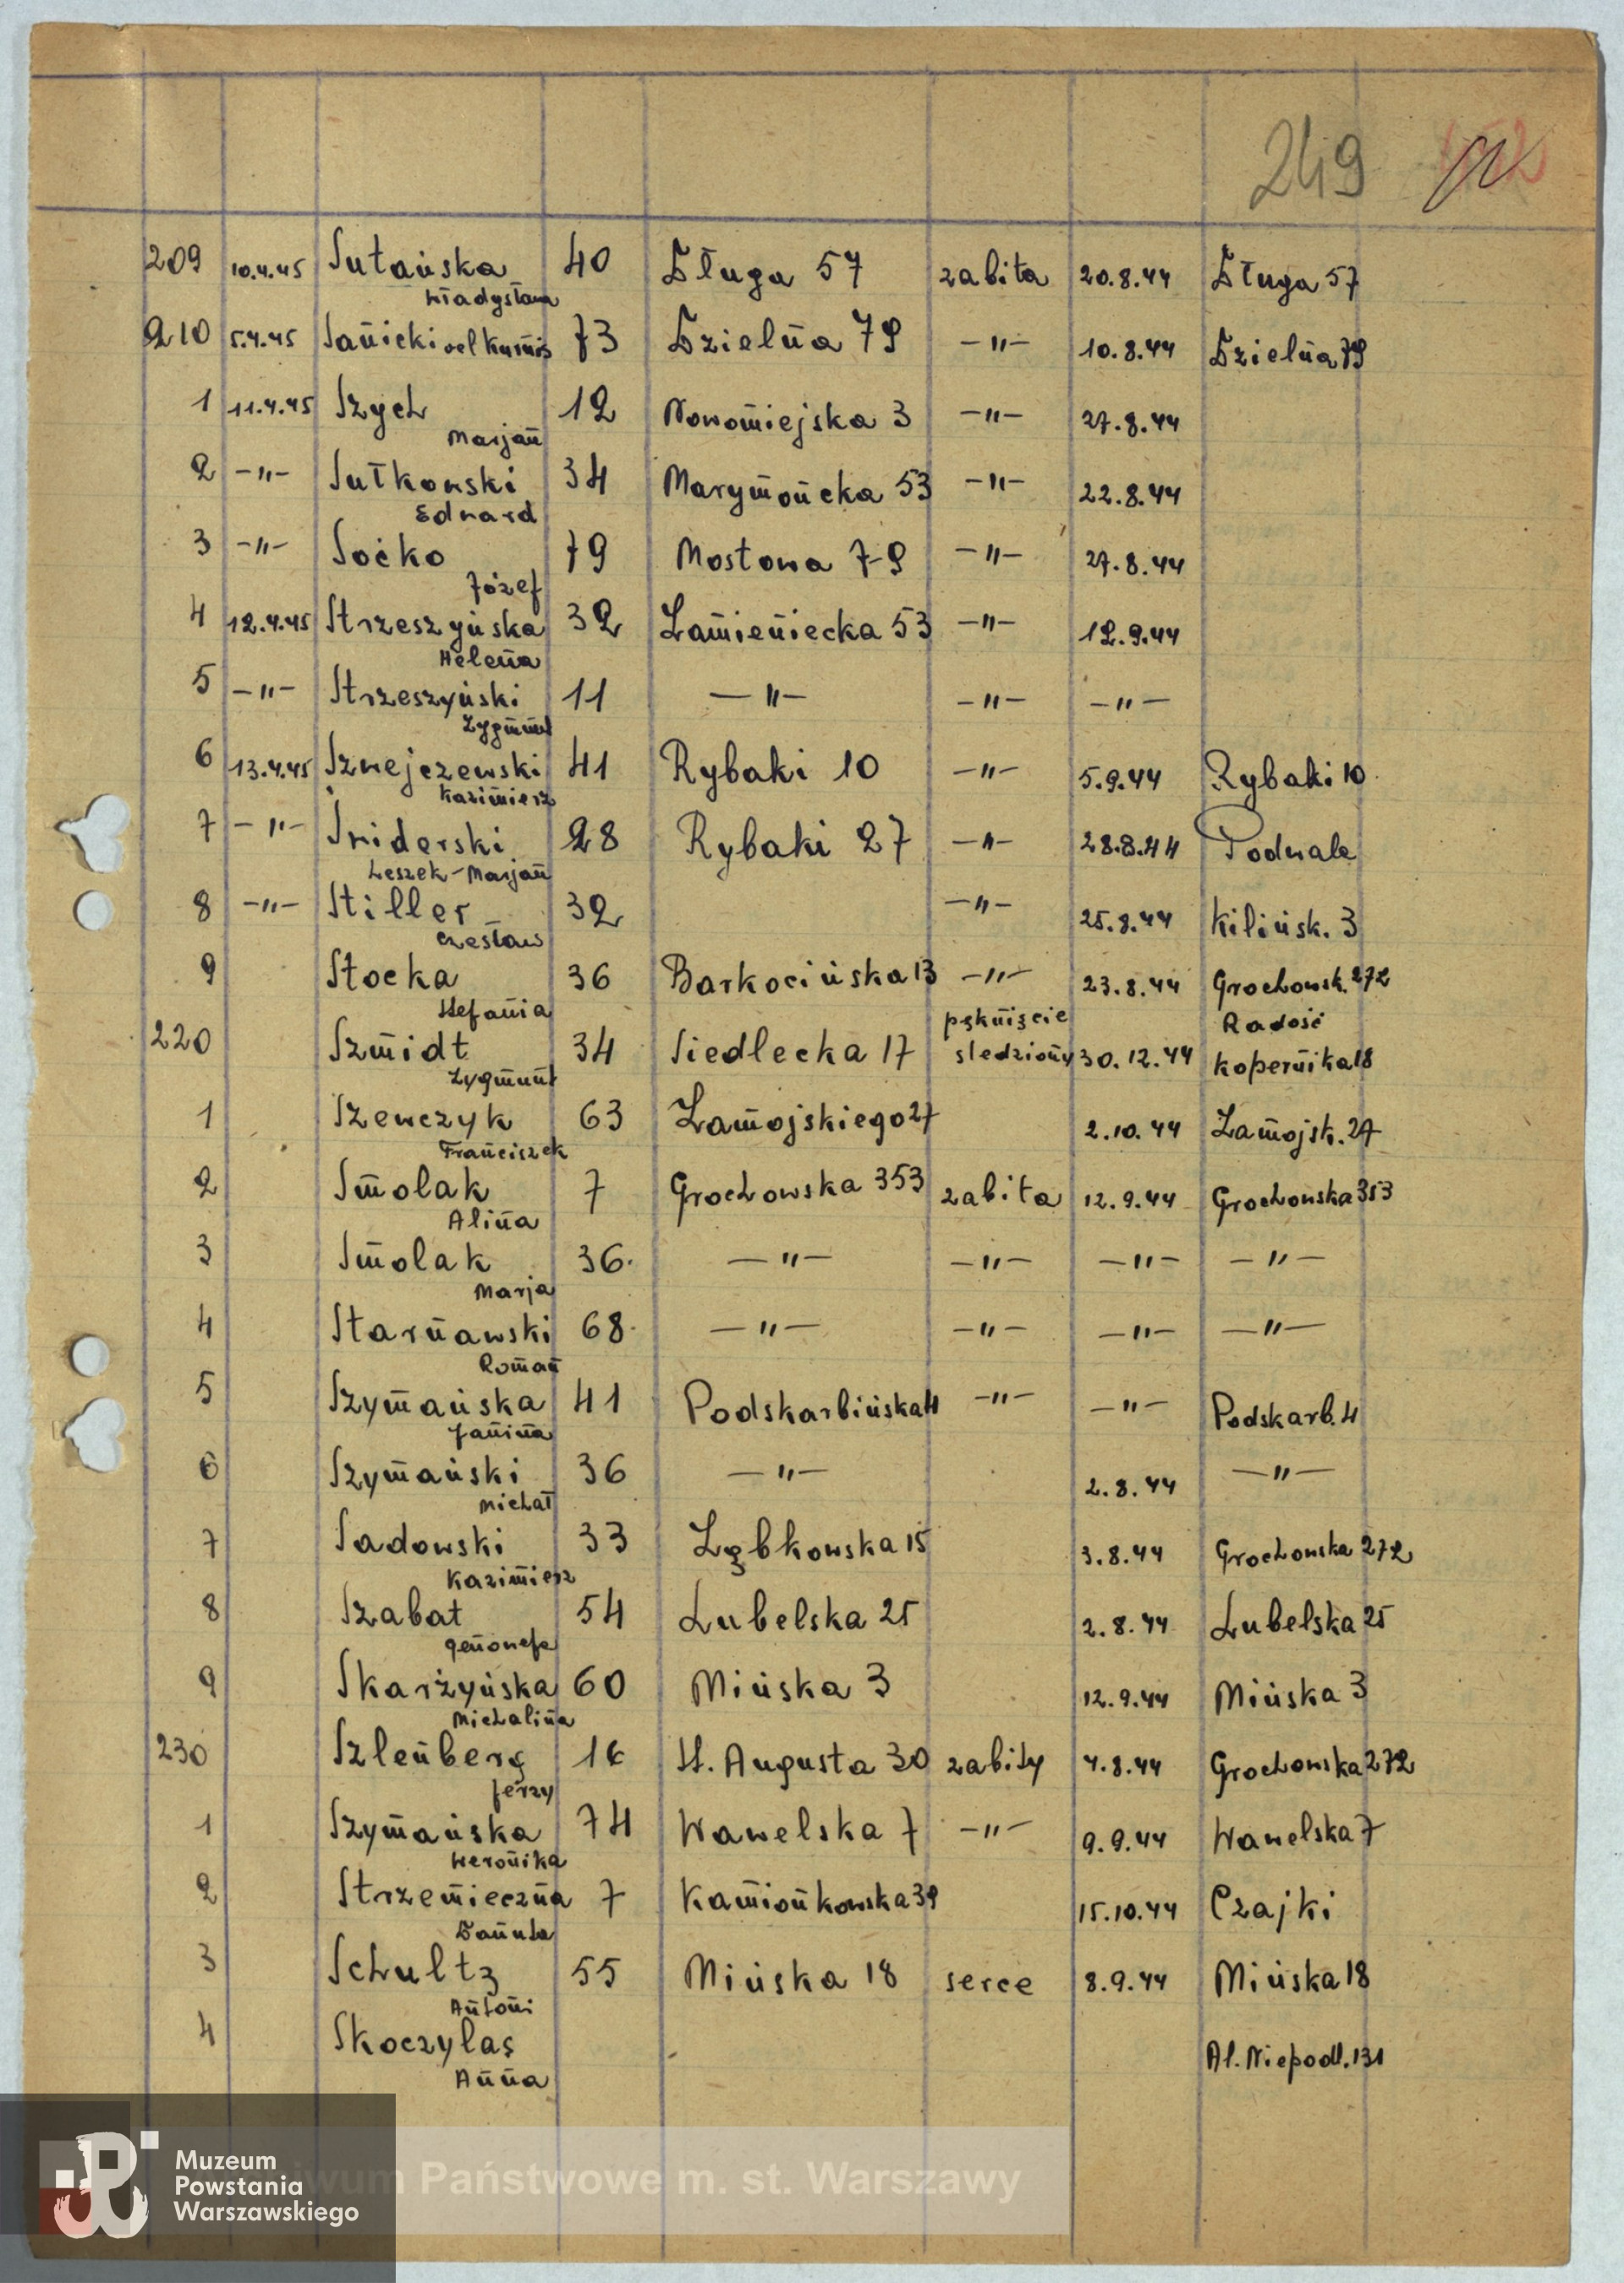 249
209 10.4.45 Sutańska 40 Długa 57 zabita 20.8.44 Długa 57
Władysława
210 5.4.45 Sanicki vel Kuśnis 73 Dzielna 79 —„— 10.8.44 Dzielna 79
1 11.4.45 Szych 12 Nowomiejska 3 —„— 27.8.44
Marjan
2 —„— Sułkowski 34 Marymoncka 53 —„— 22.8.44
Edward
3 —„— Soćko 79 Mostowa 7-9 —„— 27.8.44
Józef
4 12.4.45 Strzeszyńska 32 Zamieniecka 53 —„— 12.9.44
Helena
5 —„— Strzeszyński 11 —„— —„— —„—
Zygmunt
6 13.4.45 Szwejczewski 41 Rybaki 10 —„— 5.9.44 Rybaki 10
Kazimierz
7 —„— Świderski 28 Rybaki 27 —„— 28.8.44 Podwale
Leszek-Marjan
8 —„— Stiller 32 —„— 25.8.44 Kilińsk. 3
Czesław
9 Stocka 36 Barkocińska 13 —„— 23.8.44 Grochowsk. 272
Stefania
220 Szmidt 34 Siedlecka 17 pęknięcie śledziony 30.12.44 Radość Kopernika 18
Zygmunt
1 Szewczyk 63 Zamojskiego 27 2.10.44 Zamojsk. 27
Franciszek
2 Smolak 7 Grochowska 353 zabita 12.9.44 Grochowska 353
Alina
3 Smolak 36 —„— —„— —„— —„—
Marja
4 Starnawski 68 —„— —„— —„— —„—
Roman
5 Szymańska 41 Podskarbińska 4 —„— —„— Podskarb. 4
Janina
6 Szymański 36 —„— 2.8.44 —„—
Michał
7 Sadowski 33 Ząbkowska 15 3.8.44 Grochowska 272
Kazimierz
8 Szabat 54 Lubelska 25 2.8.44 Lubelska 25
Genowefa
9 Skarżyńska 60 Mińska 3 12.9.44 Mińska 3
Michalina
230 Szlenberg 16 St. Augusta 30 zabity 4.8.44 Grochowska 272
Jerzy
1 Szymańska 74 Wawelska 7 —„— 9.9.44 Wawelska 7
Weronika
2 Strzemieczna 7 Kamionkowska 39 15.10.44 Czajki
Danuta
3 Schultz 55 Mińska 18 serce 8.9.44 Mińska 18
Antoni
4 Skoczylas Al. Niepodl. 131
Anna
Muzeum
Powstania
Warszawskiego
iwum Państwowe m. st. Warszawy